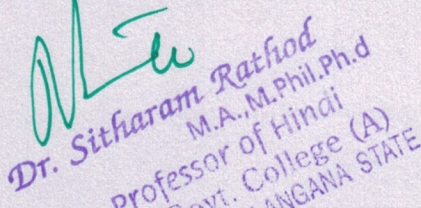 Dr. Sitharam Rathod
M.A.,M.Phil.Ph.d
Professor of Hindi
Govt. College (A)
STATE